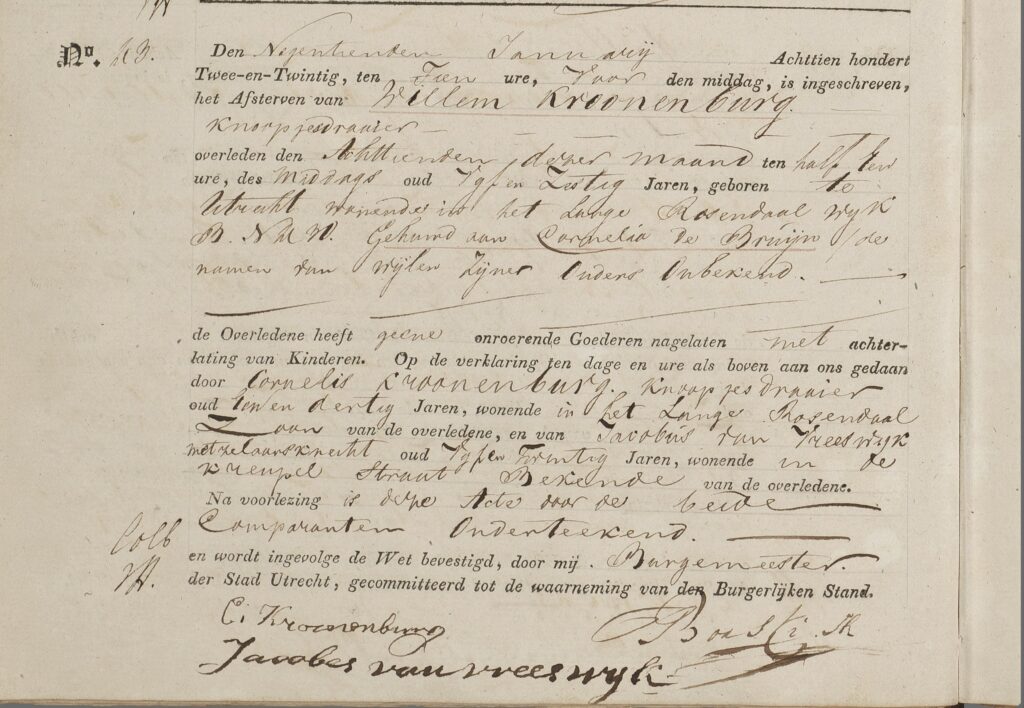 No. 43.
Den Negentienden January Achttien hondert
Twee-en-Twintig, ten Tien ure, Voor den middag, is ingeschreven,
het Afsterven van Willem Kroonenburg.
Knoopjesdraaier
overleden den Achttienden dezer maand ten half een
ure, des Middags oud Vyf en Zestig Jaren, geboren te
Utrecht wonende in het Lange Rosendaal wyk
B. Gehuwd aan Cornelia de Bruijn / de
namen van wylen Zyner Ouders Onbekend.
de Overledene heeft geene onroerende Goederen nagelaten met achter-
lating van Kinderen. Op de verklaring ten dage en ure als boven aan ons gedaan
door Cornelis Kroonenburg, Knoopjesdraaier
oud een en dertig Jaren, wonende in het Lange Rosendaal
Zoon van de overledene, en van Jacobus van Vreeswyk
metzelaarsknecht oud Vyf en Twintig Jaren, wonende in de
Kreupel Straat Bekende van de overledene.
Na voorlezing is deze Acte door de beide
Comparanten Onderteekend.
Coll
en wordt ingevolge de Wet bevestigd, door mij. Burgemeester.
der Stad Utrecht, gecommitteerd tot de waarneming van den Burgerlijken Stand.
C. Kroonenburg
Jacobes van vreeswyk